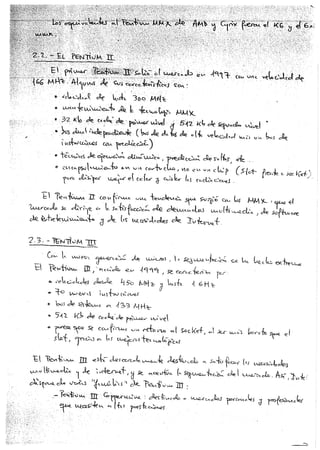 Los equivalentes al Pentium MMX de AMD y Cyrix fueron el K6 y el 6x
2.2.- EL PENTIUM II
El primer Pentium II salió al mercado en 1997 con una velocidad de
166 MHz. Algunas de sus características son:
• velocidad de hasta 300 MHz
• mantenimiento de la tecnología MMX
• 32 Kb de caché de primer nivel y 512 Kb de segundo nivel
• bus dual independiente (bus de datos de alta velocidad más un bus de
instrucciones con predicción)
• técnicas de ejecución dinámica, predicción de saltos, etc.
• encapsulamiento en un cartucho, no en un chip (Slot frente a socket)
para disipar mejor el calor y aislar las radiaciones.
El Pentium II confirma una tendencia que surgió con los MMX: que el
mercado se dirige a la satisfacción de demandas multimedia, de software
de entretenimiento y de las necesidades de Internet.
2.3.- PENTIUM III
Con la nueva generación de micros, la segmentación se ha hecho extrema
El Pentium III, nacido en 1999, se caracteriza por:
• velocidades desde 450 MHz y hasta 1 GHz
• 70 nuevas instrucciones
• bus de sistema a 133 MHz
• 512 Kb de caché de primer nivel
• parece que se confirma un retorno al socket, al ser más barato que el
slot, gracias a las mejoras tecnológicas
El Pentium III está descaradamente destinado a satisfacer las necesidades
multimedia y de internet, y se acentúa la segmentación del mercado. Así, Intel
dispone de varias "familias" de Pentium III:
- Pentium III Coppermine: destinado a mercados personales y profesionales
que necesiten altas prestaciones